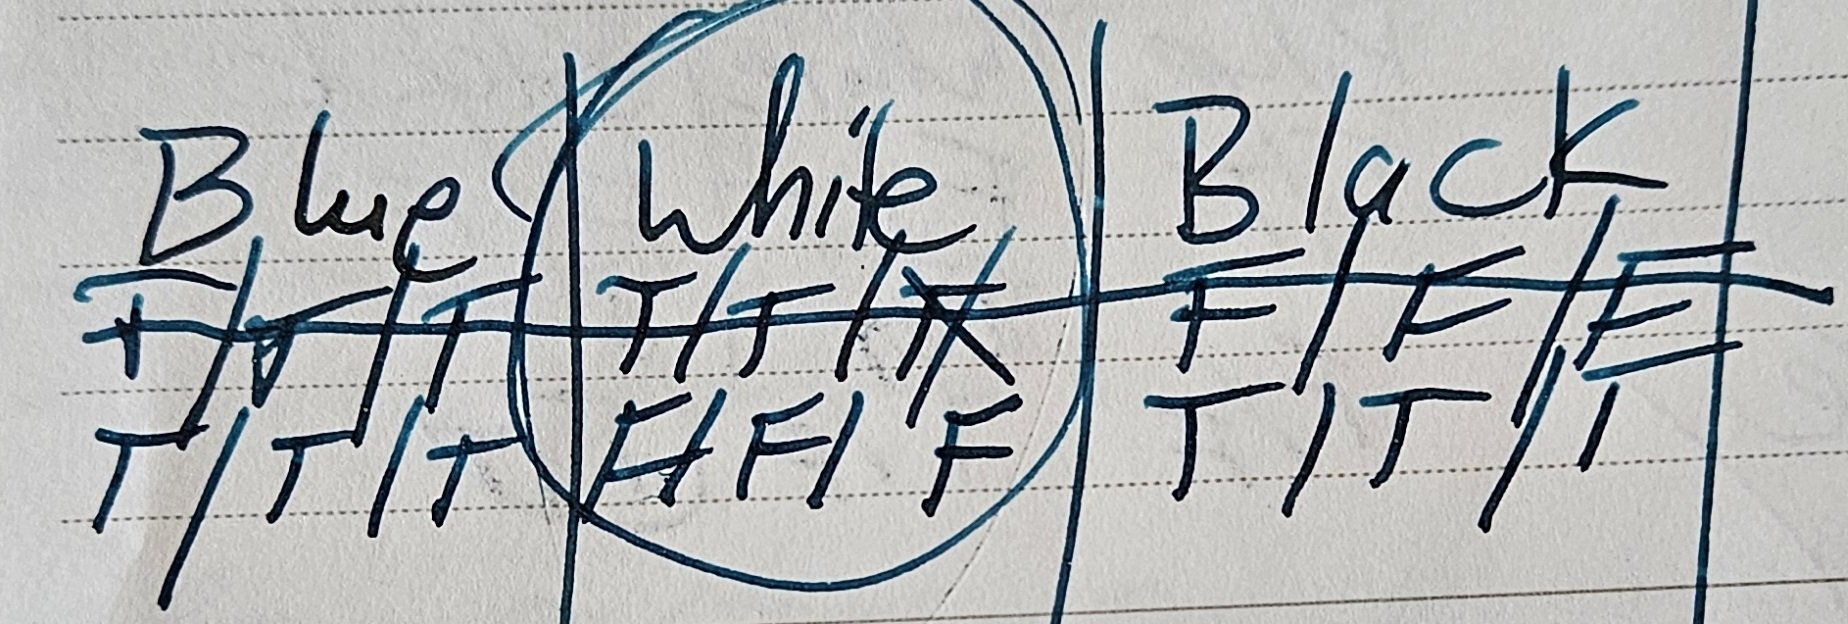 Blue | White | Black
T/T/T | T/F/ | F/F/F
T/T/T | F/F/F | T/T/T